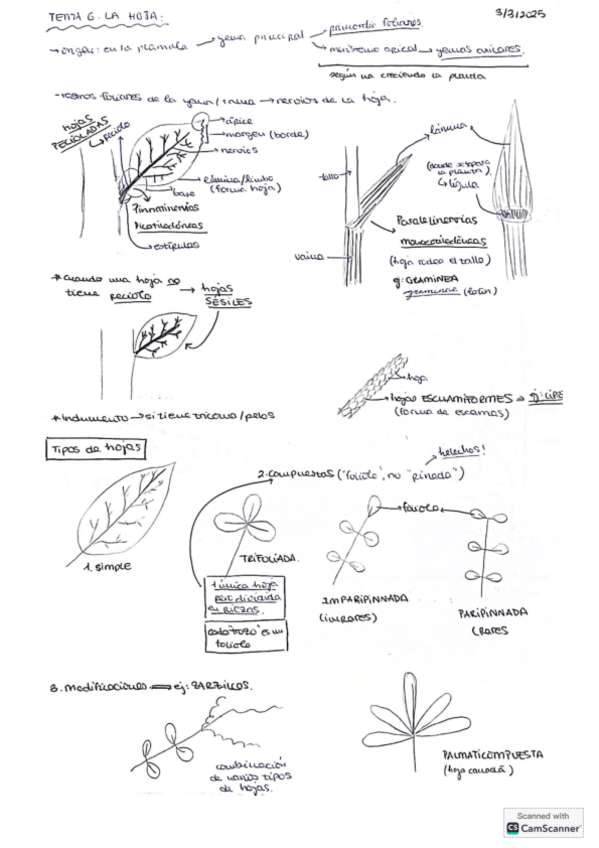 TEMA 6. LA HOJA:
3/3/2025
→ origen: en la plúmula → yema principal → primordio foliares.
→ meristemo apical → yemas axilares.
según va creciendo la planta
foliares de la yema → nervios de la hoja.
hojas PECIOLADAS
→ Peciolo
ápice
margen (borde)
nervios
lámina/limbo (forma hoja)
base
Pinninervias
Dicotiledóneas
estípulas
lámina
tallo
lígula
Paralelinervias
monocotiledóneas
(hoja rodea el tallo)
vaina
GRAMINEA
(latín)
* cuando una hoja no tiene peciolo → hojas SÉSILES
hoja
hojas ESCUAMIFORMES → ej: CIPE
(forma de escamas)
* Indumento → si tiene tricoma/pelos
Tipos de hojas
helechos!
2. compuestas ("foliolo", no "pinada")
foliolo
1. simple
TRIFOLIADA.
1 única hoja pero dividida en piezas.
cada trozo es un foliolo
IMPARIPINNADA
(impares)
PARIPINNADA
(PARES
3. modificaciones ⟹ ej: ZARZILLOS.
combinación
de varios tipos
de hojas.
PALMATICOMPUESTA
Scanned with
CS CamScanner